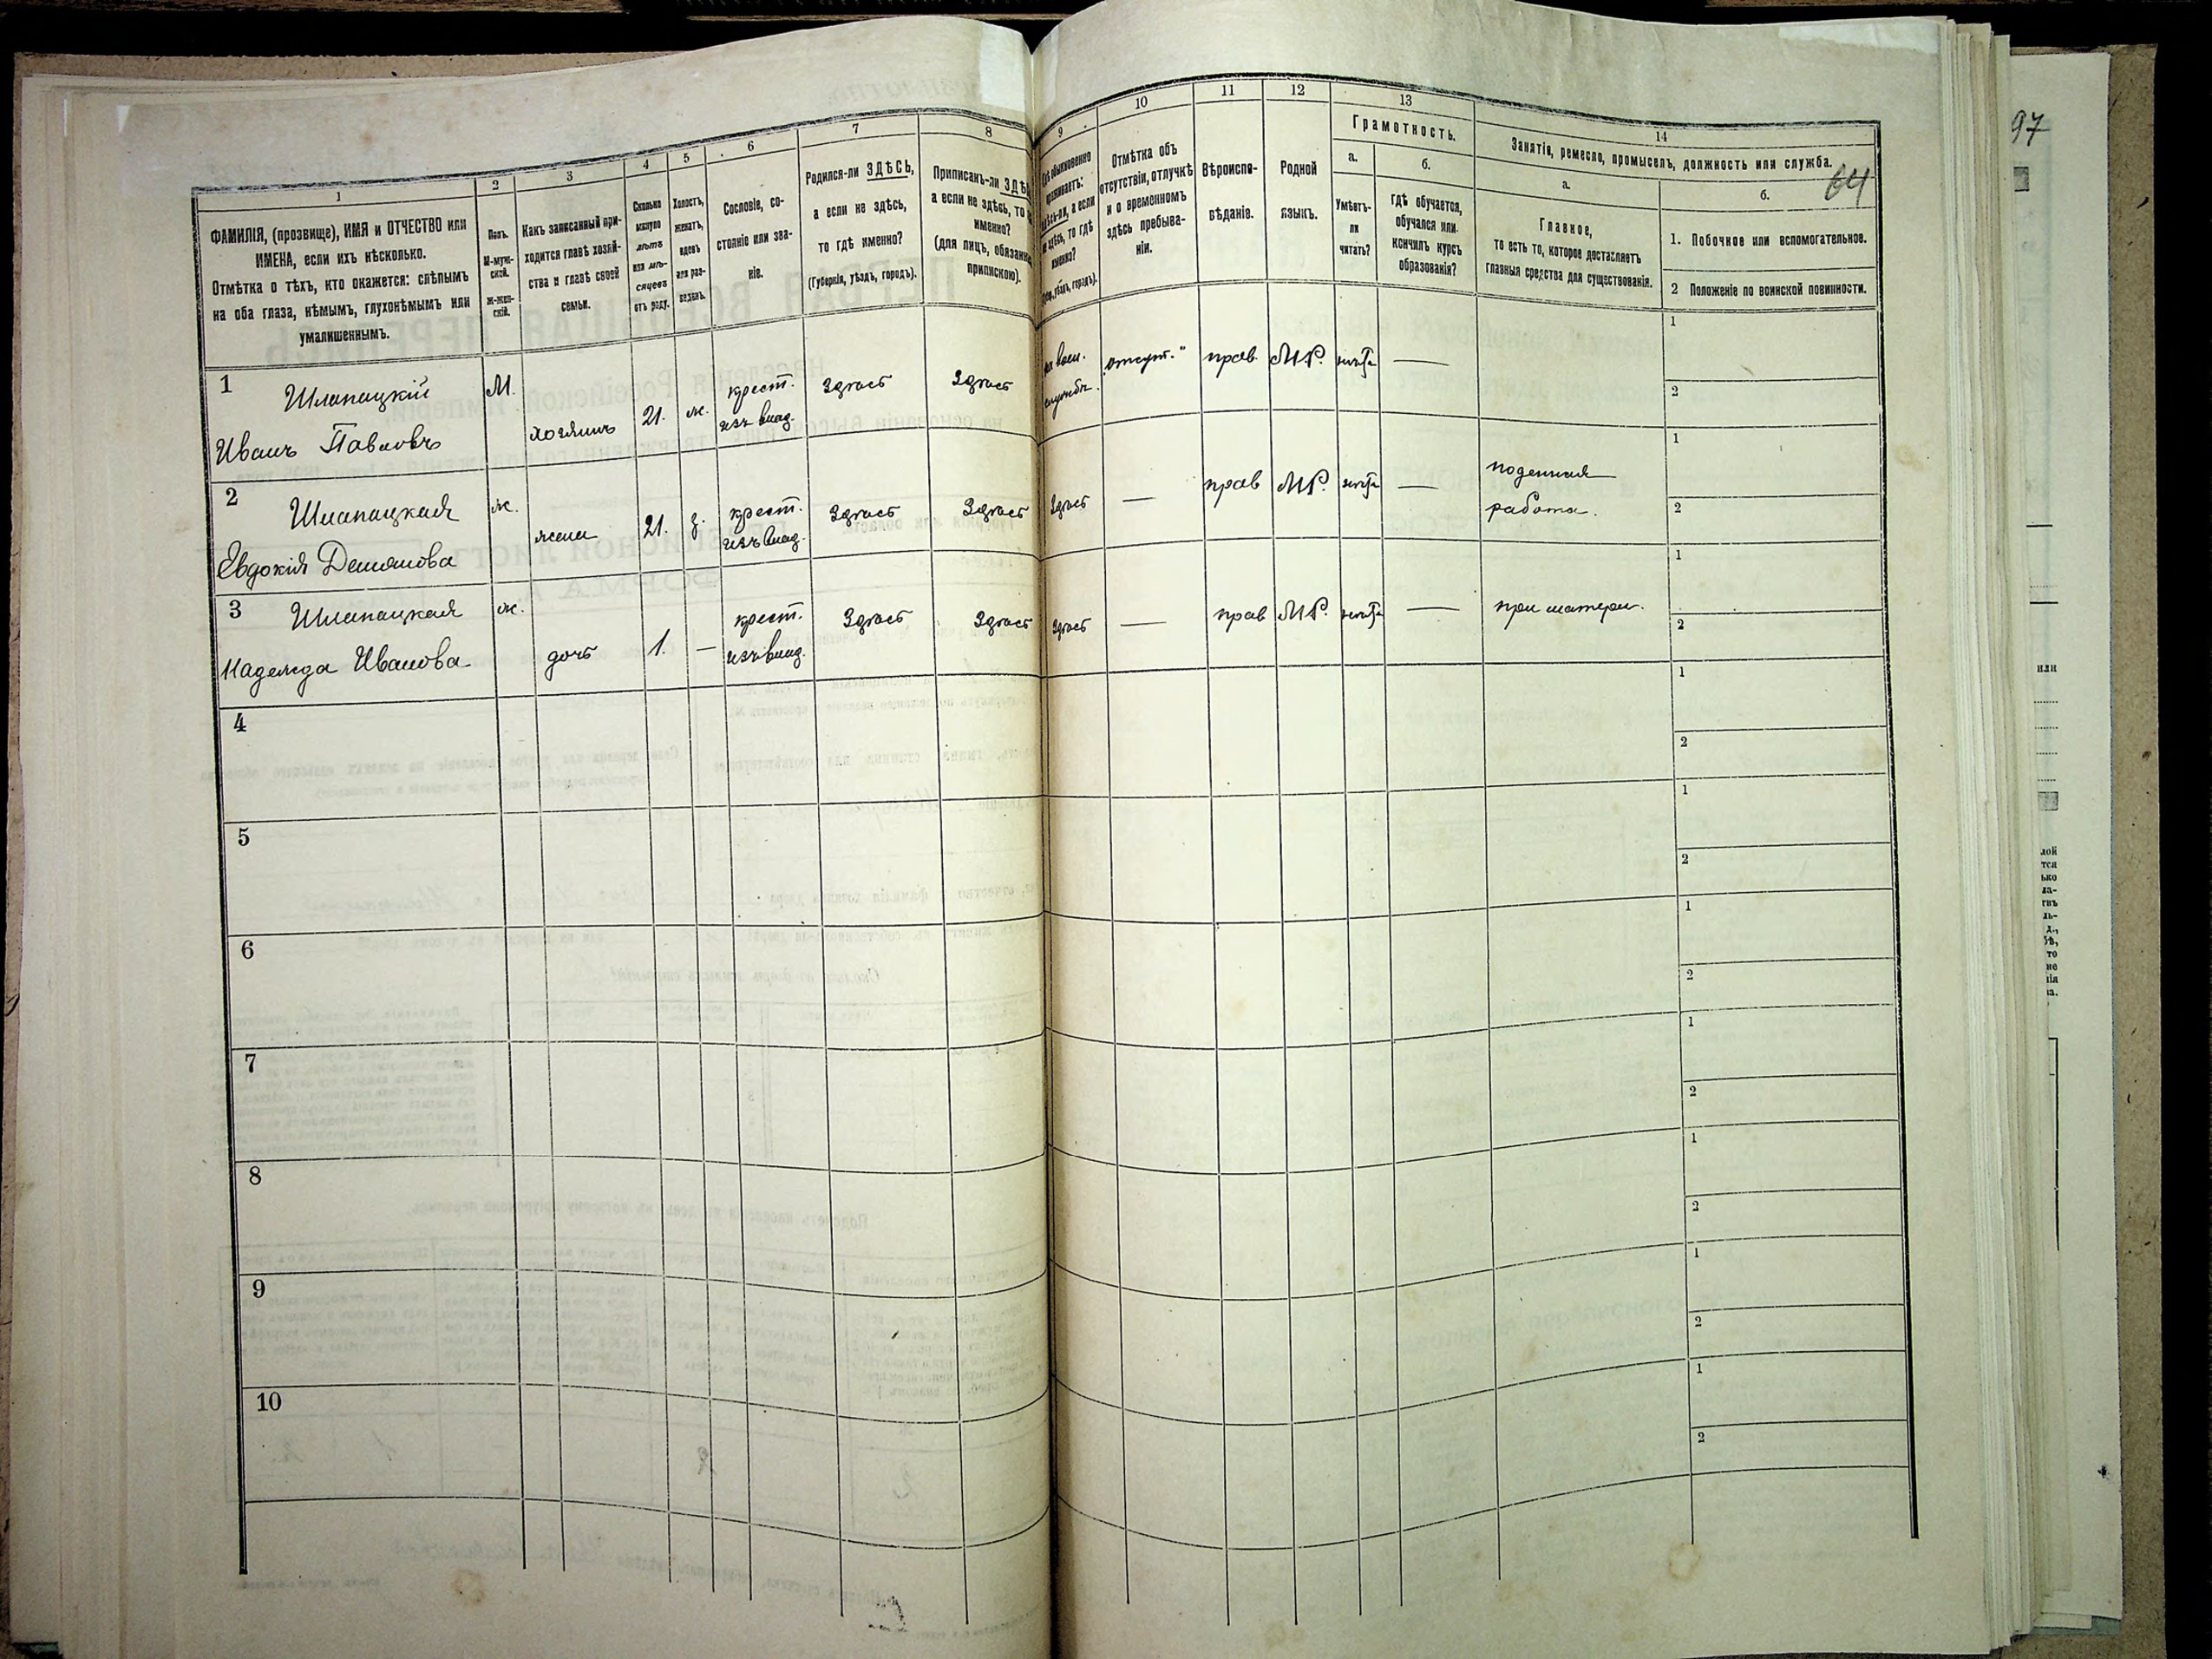 97
64
1
2
3
4
5
6
7
8
9
10
11
12
13
14
ФАМИЛІЯ, (прозвище), ИМЯ и ОТЧЕСТВО или
ИМЕНА, если ихъ нѣсколько.
Отмѣтка о тѣхъ, кто окажется: слѣпымъ
на оба глаза, нѣмымъ, глухонѣмымъ или
умалишеннымъ.
Полъ.
М-муж-
ской.
Ж-жен-
скій.
Какъ записанный при-
ходится главѣ хозяй-
ства и главѣ своей
семьи.
Сколько
минуло
лѣтъ
или мѣ-
сяцевъ
отъ роду.
Холостъ,
женатъ,
вдовъ
или раз-
веденъ.
Сословіе, со-
стояніе или зва-
ніе.
Родился-ли ЗДѢСЬ,
а если не здѣсь,
то гдѣ именно?
(Губернія, уѣздъ, городъ).
Приписанъ-ли
а если не здѣсь, то
именно?
(для лицъ,
припискою).
обыкновенно
проживаетъ:
а если
здѣсь, то гдѣ
именно?
уѣздъ, городъ).
Отмѣтка объ
отсутствіи, отлучкѣ
и о временномъ
здѣсь пребыва-
ніи.
Вѣроиспо-
вѣданіе.
Родной
языкъ.
Грамотность.
а.
Умѣетъ-
ли
читать?
б.
гдѣ обучается,
обучался или
кончилъ курсъ
образованія?
Занятіе, ремесло, промыселъ, должность или служба.
а.
Главное,
то есть то, которое доставляетъ
главныя средства для существованія.
б.
1. Побочное или вспомогательное.
2 Положеніе по воинской повинности.
1 Шлапацкій М. хозяинъ 21. ж. крест. изъ влад. Здѣсь Здѣсь воен. службѣ. отсут. прав. М.Р. —
Иванъ Павловъ
1
2
2 Шлапацкая ж. жена 21. з. крест. изъ влад. Здѣсь Здѣсь Здѣсь — прав М.Р. — поденная
Евдокія Демянова работа.
1
2
3 Шлапацкая ж. дочь 1. — крест. изъ влад. Здѣсь Здѣсь Здѣсь — прав М.Р. — при матери.
Надежда Иванова
1
2
4
1
2
5
1
2
6
1
2
7
1
2
8
1
2
9
1
2
10
1
2